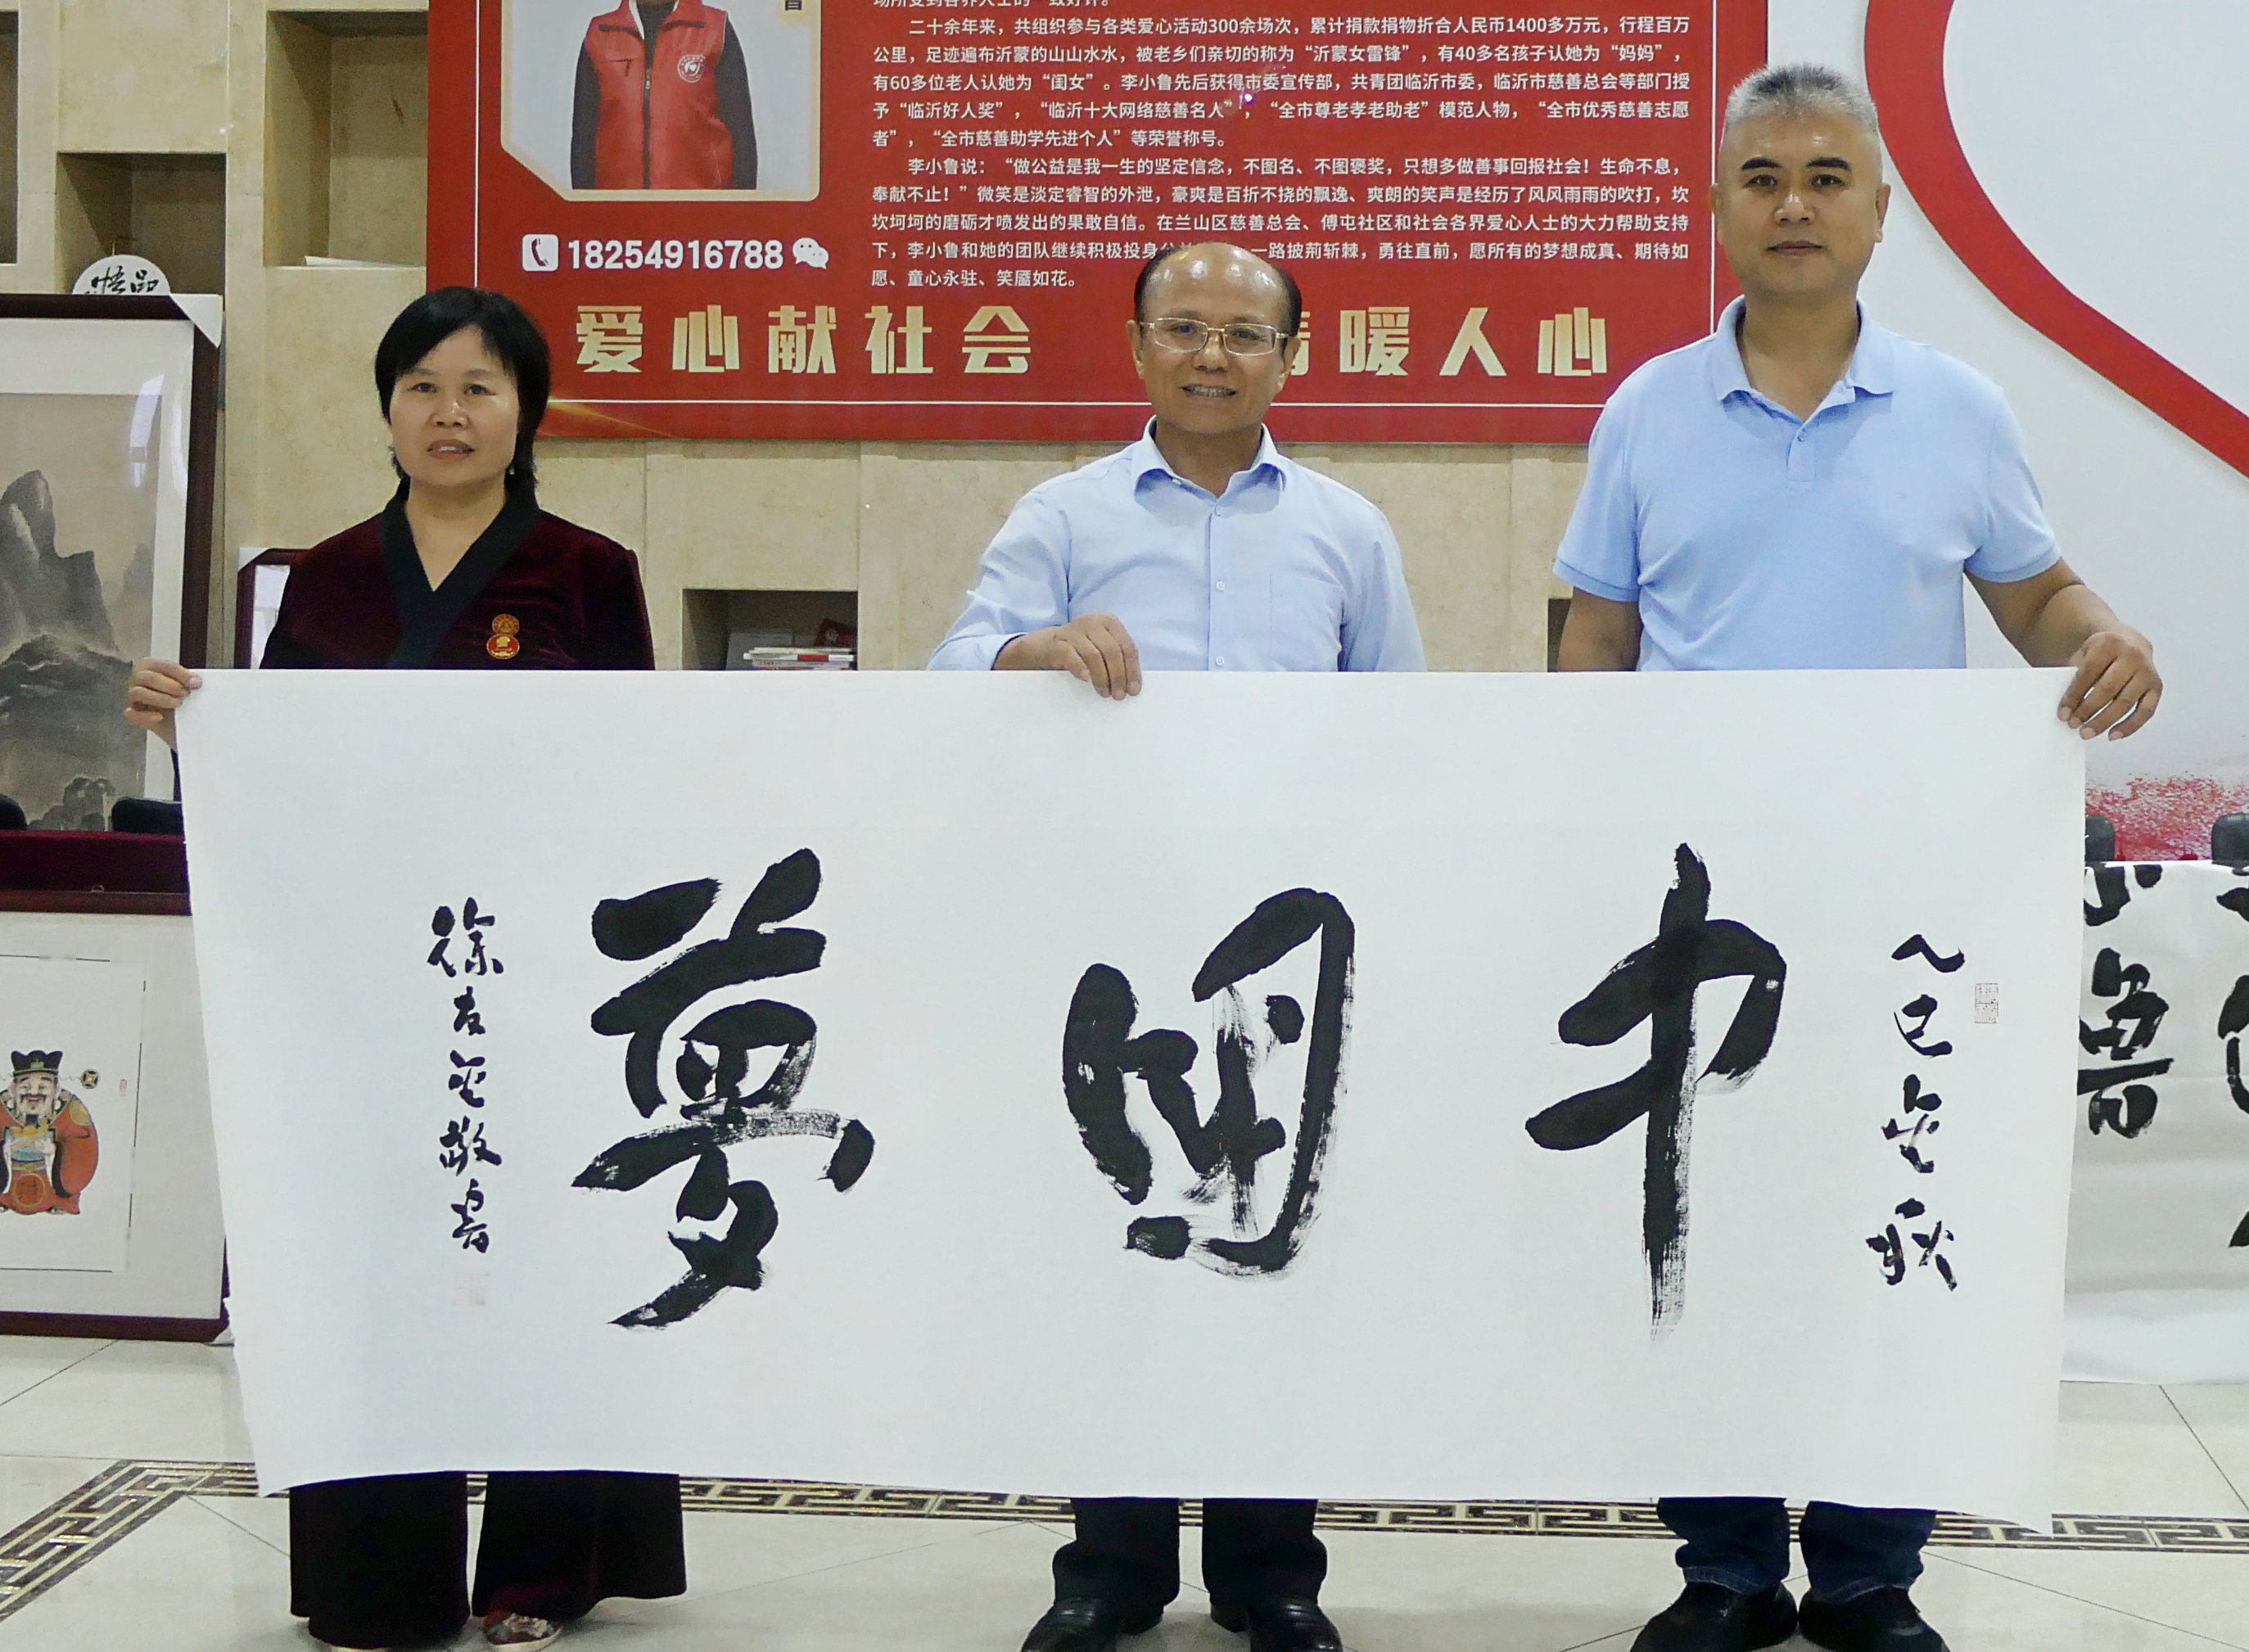 二十余年来，共组织参与各类爱心活动300余场次，累计捐款捐物折合人民币1400多万元，行程百万
公里，足迹遍布沂蒙的山山水水，被老乡们亲切的称为“沂蒙女雷锋”，有40多名孩子认她为“妈妈”，
有60多位老人认她为“闺女”。李小鲁先后获得市委宣传部，共青团临沂市委，临沂市慈善总会等部门授
予“临沂好人奖”，“临沂十大网络慈善名人”，“全市尊老孝老助老”模范人物，“全市优秀慈善志愿
者”，“全市慈善助学先进个人”等荣誉称号。
李小鲁说：“做公益是我一生的坚定信念，不图名、不图褒奖，只想多做善事回报社会！生命不息，
奉献不止！”微笑是淡定睿智的外泄，豪爽是百折不挠的飘逸、爽朗的笑声是经历了风风雨雨的吹打，坎
坎坷坷的磨砺才喷发出的果敢自信。在兰山区慈善总会、傅屯社区和社会各界爱心人士的大力帮助支持
下，李小鲁和她的团队继续积极投身公 一路披荆斩棘，勇往直前，愿所有的梦想成真、期待如
愿、童心永驻、笑靥如花。
18254916788
爱心献社会 暖人心
悟品
乙巳金秋
中国梦
徐友金敬书
鲁